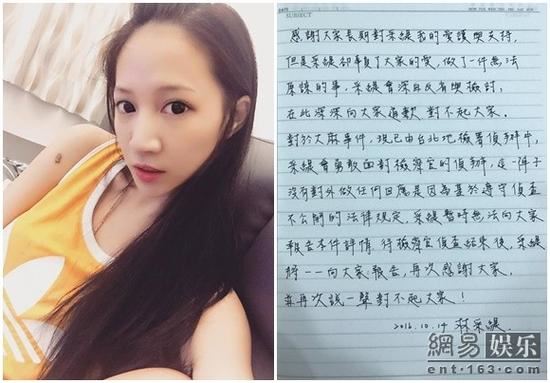 SUBJECT
感謝大家長期對采緹我的愛護與支持,
但是采緹卻辜負了大家的愛,做了一件無法
原諒的事,采緹會深自反省與檢討,
在此深深向大家道歉 對不起大家。
對於大麻事件,現已由台北地檢署偵辦中,
采緹會勇敢面對檢察官的偵辦,這一陣子
沒有對外做任何回應是因為基於遵守偵查
不公開的法律規定,采緹暫時無法向大家
報告本件詳情,待檢察官偵查結束後,采緹
將一一向大家報告,再次感謝大家,
並再次說一聲對不起大家!
2016.10.14 采緹
網易娱乐
ent.163.com